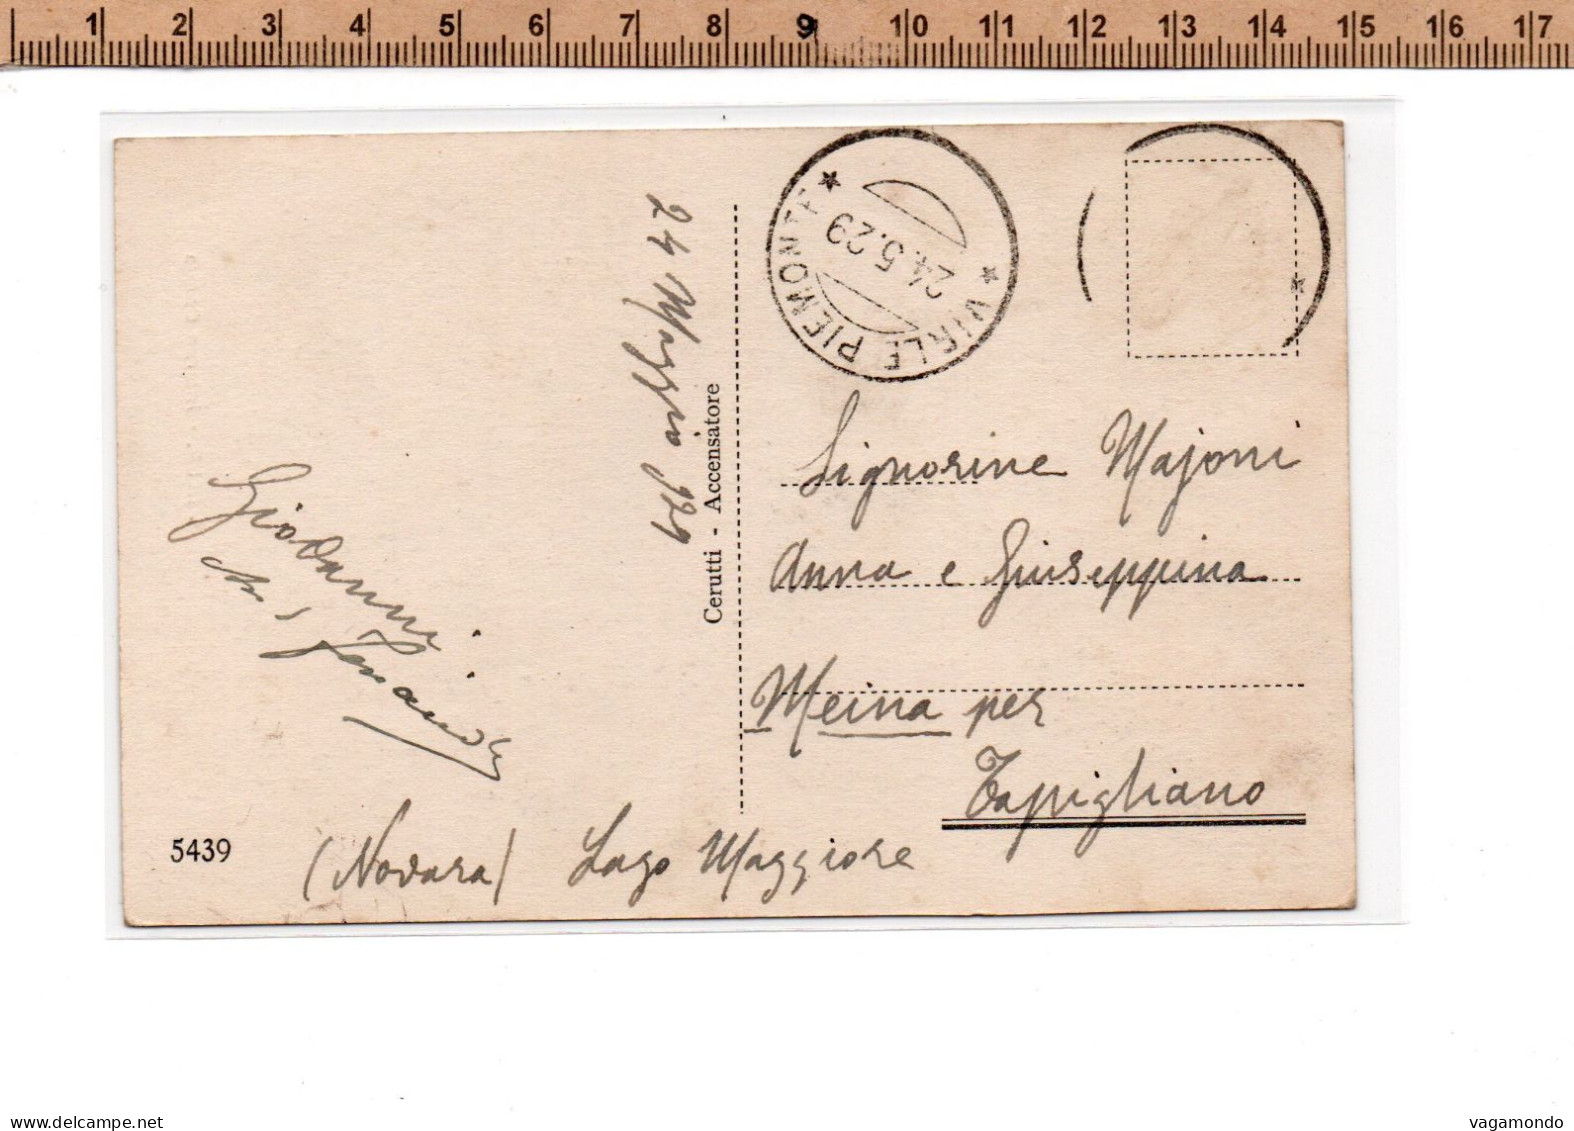 1 2 3 4 5 6 7 8 9 10 11 12 13 14 15 16 17
VIRLE PIEMONTE
24.5.29
24 Maggio 929
Cerutti - Accensatore
Signorine Majoni
Anna e Giuseppina
Meina per
Tapigliano
(Novara) Lago Maggiore
Giovanni
5439
delcampe.net
vagamondo